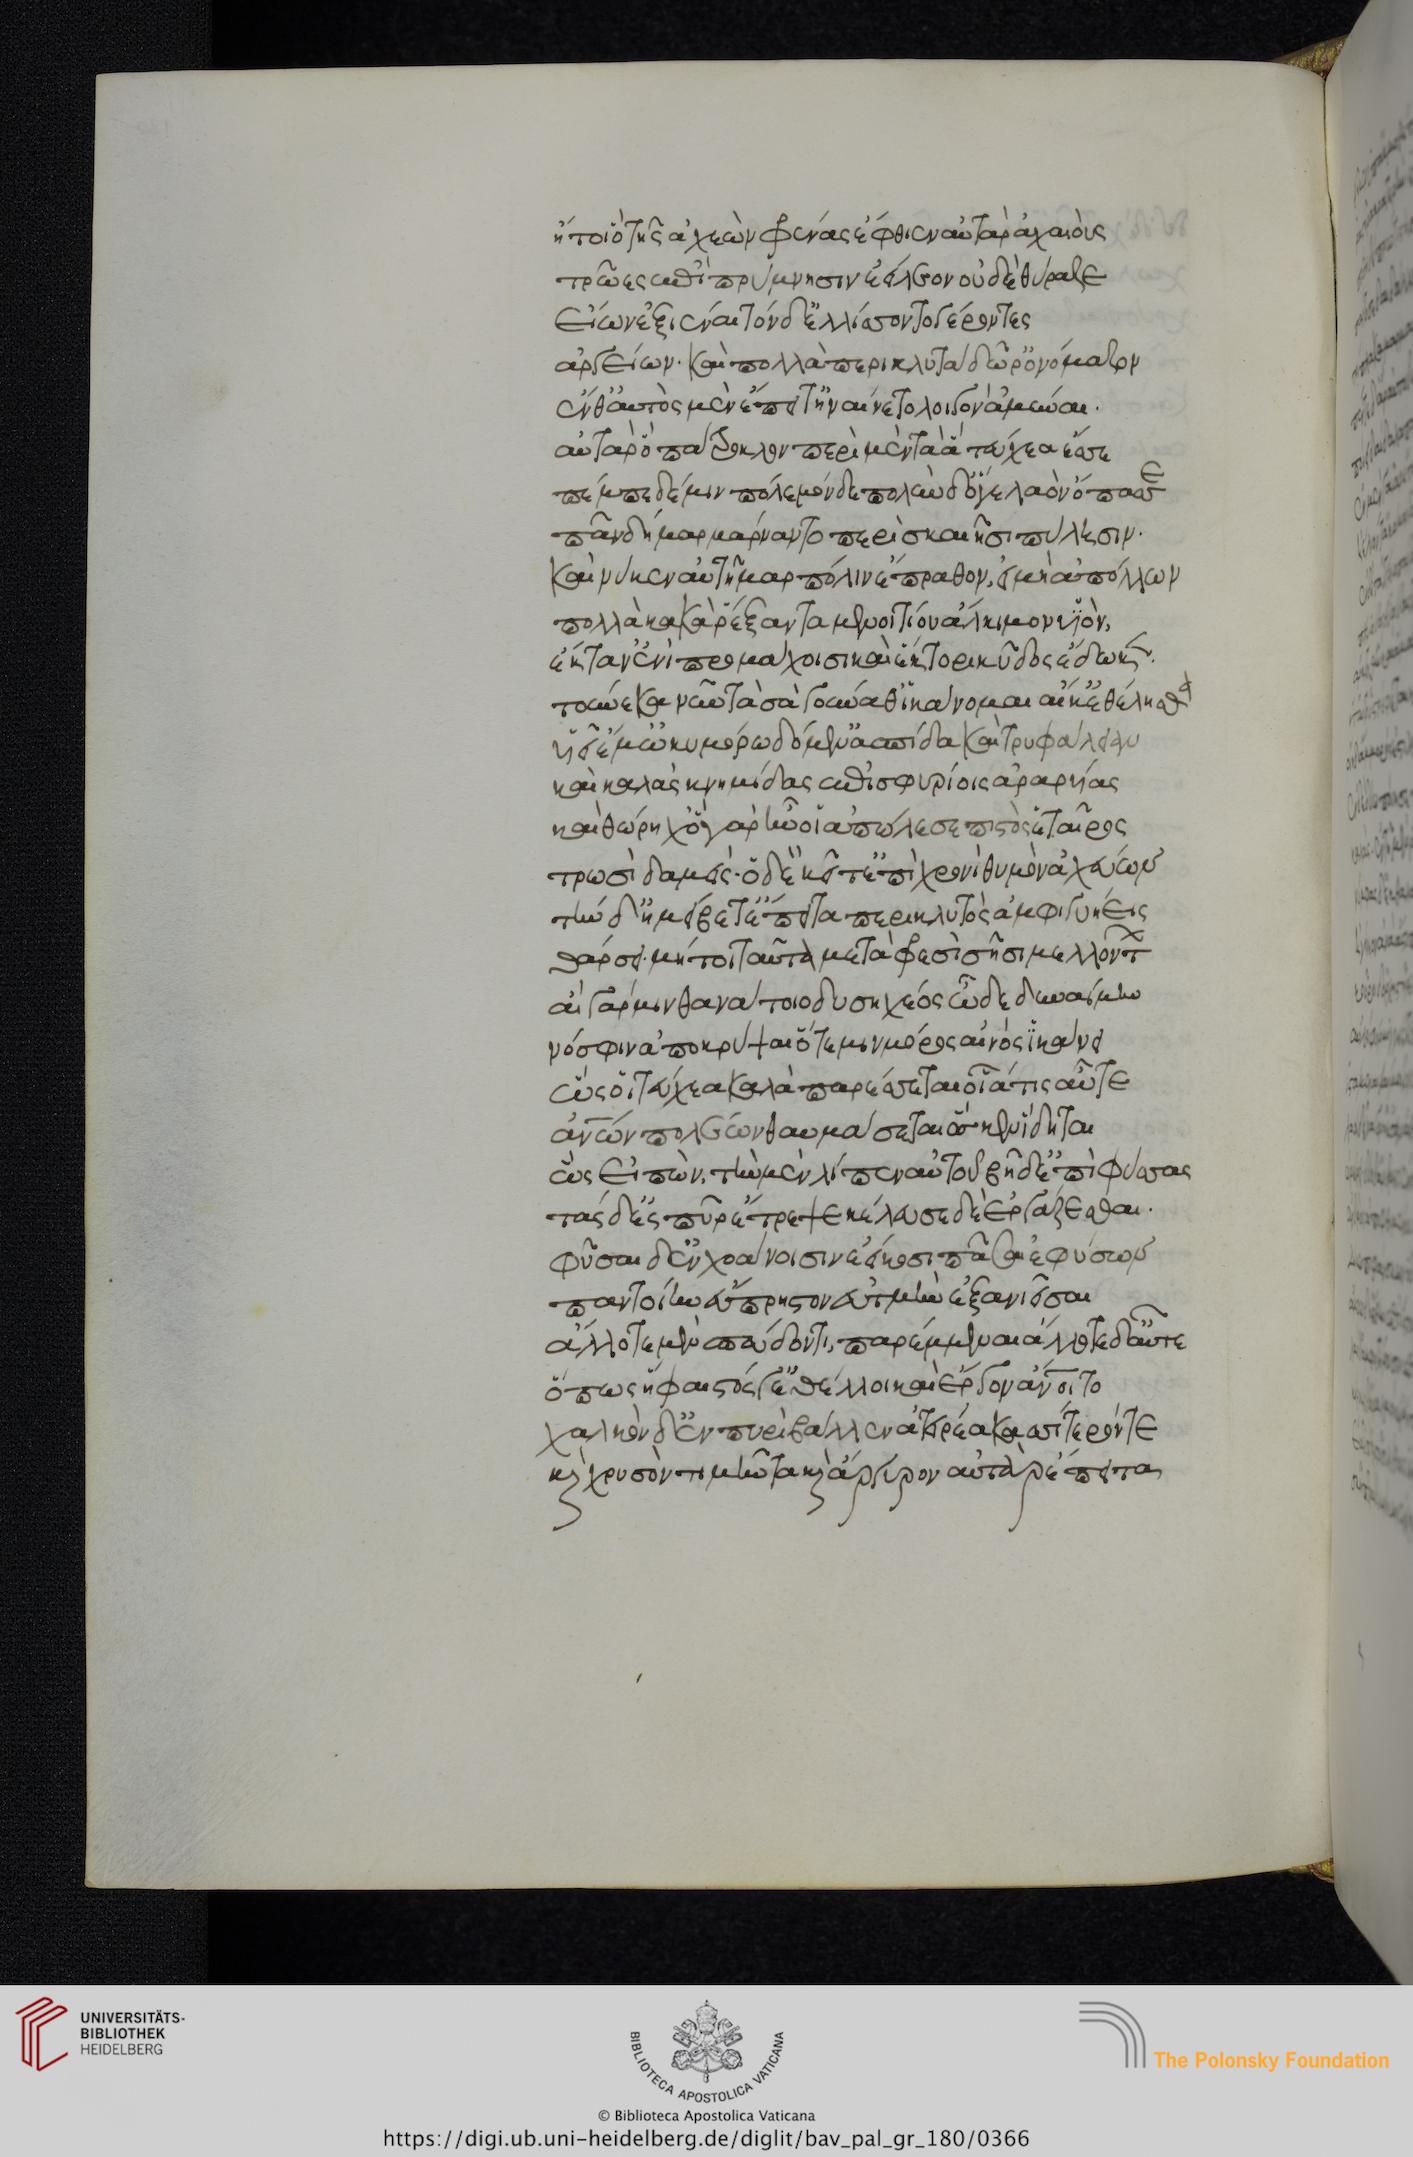 ἤτοι ὃ τῆς ἀχέων φρένας ἔφθιεν αὐτὰρ ἀχαιοὺς
τρῶες ἐπὶ πρύμνησιν ἐείλεον οὐδὲ θύραζε
εἴων ἐξιέναι τὸν δὲ λλίσσοντο γέροντες
ἀργείων· καὶ πολλὰ περικλυτὰ δῶρ' ὀνόμαζον
ἔνθ' αὐτὸς μὲν ἔπειτ' ἠναίνετο λοιγὸν ἀμῦναι·
αὐτὰρ ὃ πάτροκλον περὶ μὲν τὰ ἃ τεύχεα ἕσσε
πέμπε δέ μιν πόλεμόνδε πολὺν δ' ὅγε λαὸν ὄπασσε
πᾶν δ' ἦμαρ μάρναντο περὶ σκαιῇσι πύλῃσιν·
καὶ νύ κεν αὐτῆμαρ πόλιν ἔπραθον, εἰ μὴ ἀπόλλων
πολλὰ κακὰ ῥέξαντα μενοιτίου ἄλκιμον υἱὸν,
ἔκταν' ἐνὶ προμάχοισι καὶ ἕκτορι κῦδος ἔδωκε·
τούνεκα νῦν τὰ σὰ γούναθ' ἱκάνομαι αἴ κ' ἐθέλησθα
υἱεῖ ἐμῷ ὠκυμόρῳ δόμεν ἀσπίδα καὶ τρυφάλειαν
καὶ καλὰς κνημῖδας ἐπισφυρίοις ἀραρυίας
καὶ θώρηχ' ὃ γὰρ ἦν οἱ ἀπώλεσε πιστὸς ἑταῖρος
τρωσὶ δαμείς· ὃ δὲ κεῖται ἐπὶ χθονὶ θυμὸν ἀχεύων
τὴν δ' ἠμείβετ' ἔπειτα περικλυτὸς ἀμφιγυήεις
θάρσει· μή τοι ταῦτα μετὰ φρεσὶ σῇσι μελλόντων
αἲ γάρ μιν θανάτοιο δυσηχέος ὧδε δυναίμην
νόσφιν ἀποκρύψαι ὅτε μιν μόρος αἰνὸς ἱκάνει
ὥς οἱ τεύχεα καλὰ παρέσσεται οἷά τις αὖτε
ἀνθρώπων πολέων θαυμάσσεται ὅς κεν ἴδηται
ὣς εἰπὼν, τὴν μὲν λίπεν αὐτοῦ βῆ δ' ἐπὶ φύσας
τὰς δ' ἐς πῦρ ἔτρεψε κέλευσε δὲ ἐργάζεσθαι·
φῦσαι δ' ἐν χοάνοισιν ἐείκοσι πᾶσαι ἐφύσων
παντοίην εὔπρηστον ἀϋτμὴν ἐξανιεῖσαι
ἄλλοτε μὲν σπεύδοντι, παρέμμεναι ἄλλοτε δ' αὖτε
ὅππως ἥφαιστός γ' ἐθέλλοι καὶ ἔργον ἄνοιτο
χαλκὸν δ' ἐν πυρὶ βάλλεν ἀτειρέα κασσίτερόν τε
καὶ χρυσὸν τιμῆντα καὶ ἄργυρον αὐτὰρ ἔπειτα
UNIVERSITÄTS-
BIBLIOTHEK
HEIDELBERG
BIBLIOTECA APOSTOLICA VATICANA
The Polonsky Foundation
© Biblioteca Apostolica Vaticana
https://digi.ub.uni-heidelberg.de/diglit/bav_pal_gr_180/0366